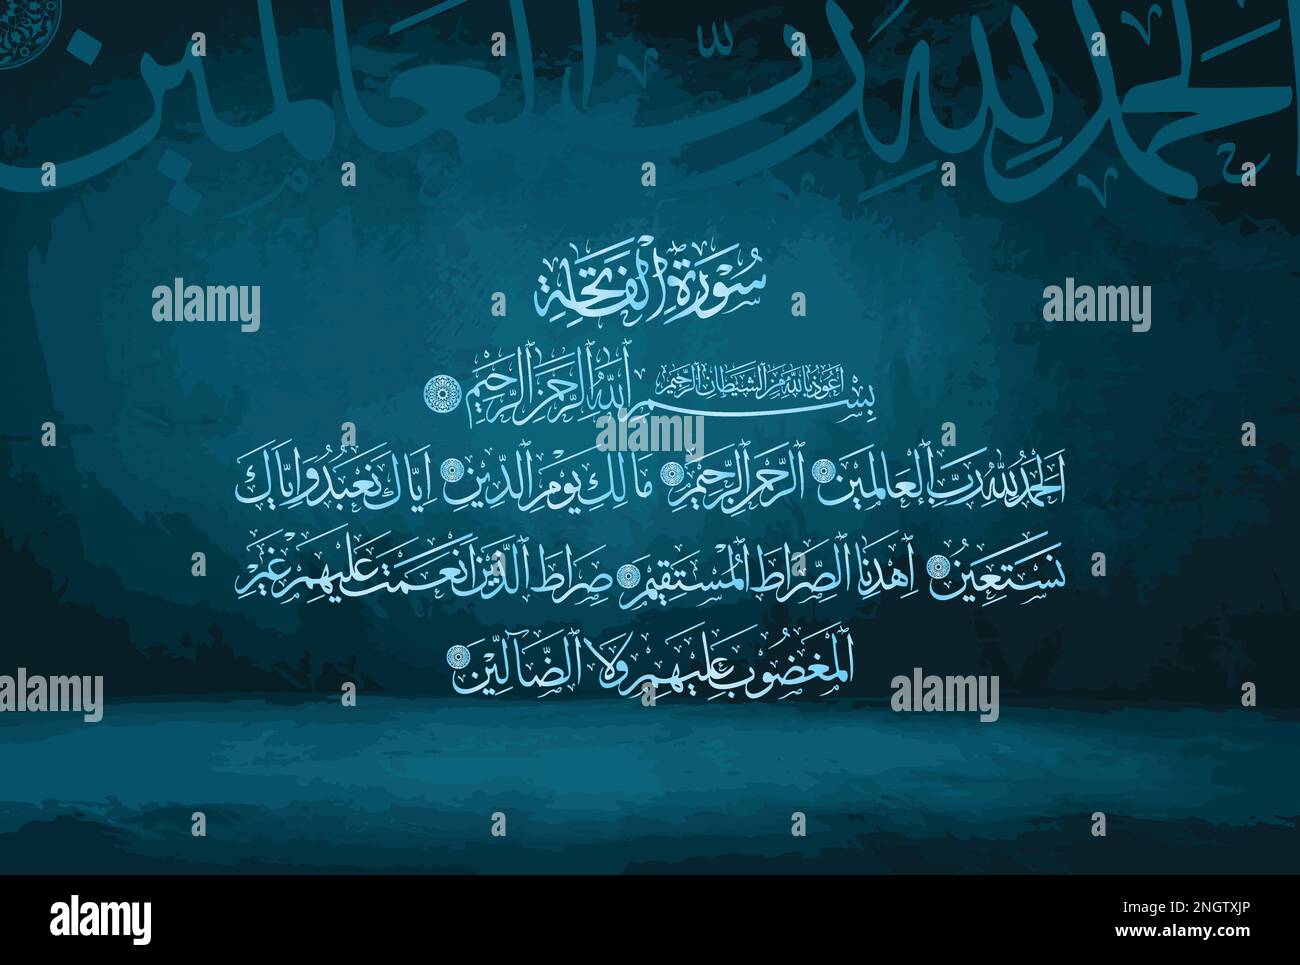 الحمد لله رب العالمين
سورة الفاتحة
أعوذ بالله من الشيطان الرجيم
بسم الله الرحمن الرحيم
الحمد لله رب العالمين الرحمن الرحيم مالك يوم الدين إياك نعبد وإياك
نستعين اهدنا الصراط المستقيم صراط الذين أنعمت عليهم غير
المغضوب عليهم ولا الضالين
alamy
a
alamy
Image ID: 2NGTXJP
www.alamy.com